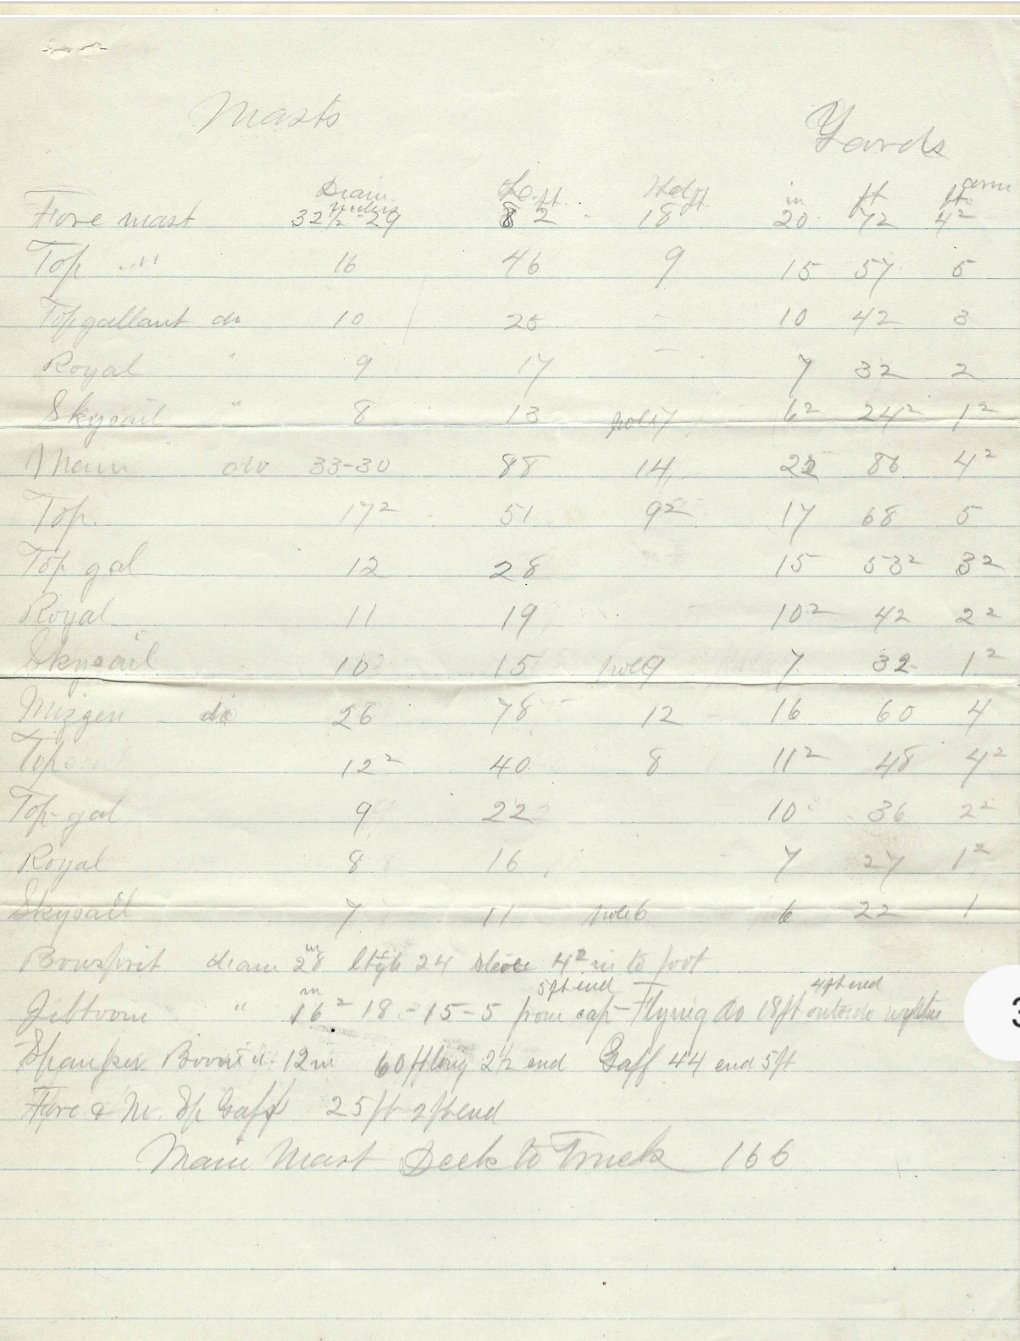 Masts Yards
Diam inches Lg. ft. Hd ft in ft arm ft.
Fore mast 32½-29 82 18 20 72 4²
Top " 16 46 9 15 57 5
Topgallant do 10 25 - 10 42 3
Royal " 9 17 - 7 32 2
Skysail " 8 13 pole 7 6² 24² 1²
Main do 33-30 88 14 22 86 4²
Top. 17² 51 9² 17 68 5
Top gal 12 28 15 53² 3²
Royal 11 19 10² 42 2²
Skysail 10 15 pole 9 7 32 1²
Mizzen do 26 78 12 16 60 4
Top 12² 40 8 11² 48 4²
Top-gal 9 22 10 36 2²
Royal 8 16 7 27 1²
Skysail 7 11 pole 6 6 22 1
Bowsprit diam 28 in 24 4² in to foot
Jibboom " 16² in 18-15-5 from cap 5 ft end - Flying do 18 ft outside 4 ft end
Spanker Boom 12 in 60 ft long 2½ end Gaff 44 end 5 ft
Fore & M. Sp Gaff 25 ft 2 ft end
Main Mast Deck to Truck 166
3